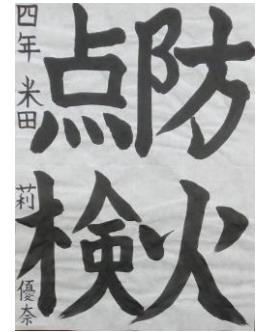 防火
点検
四年 米田 莉優奈